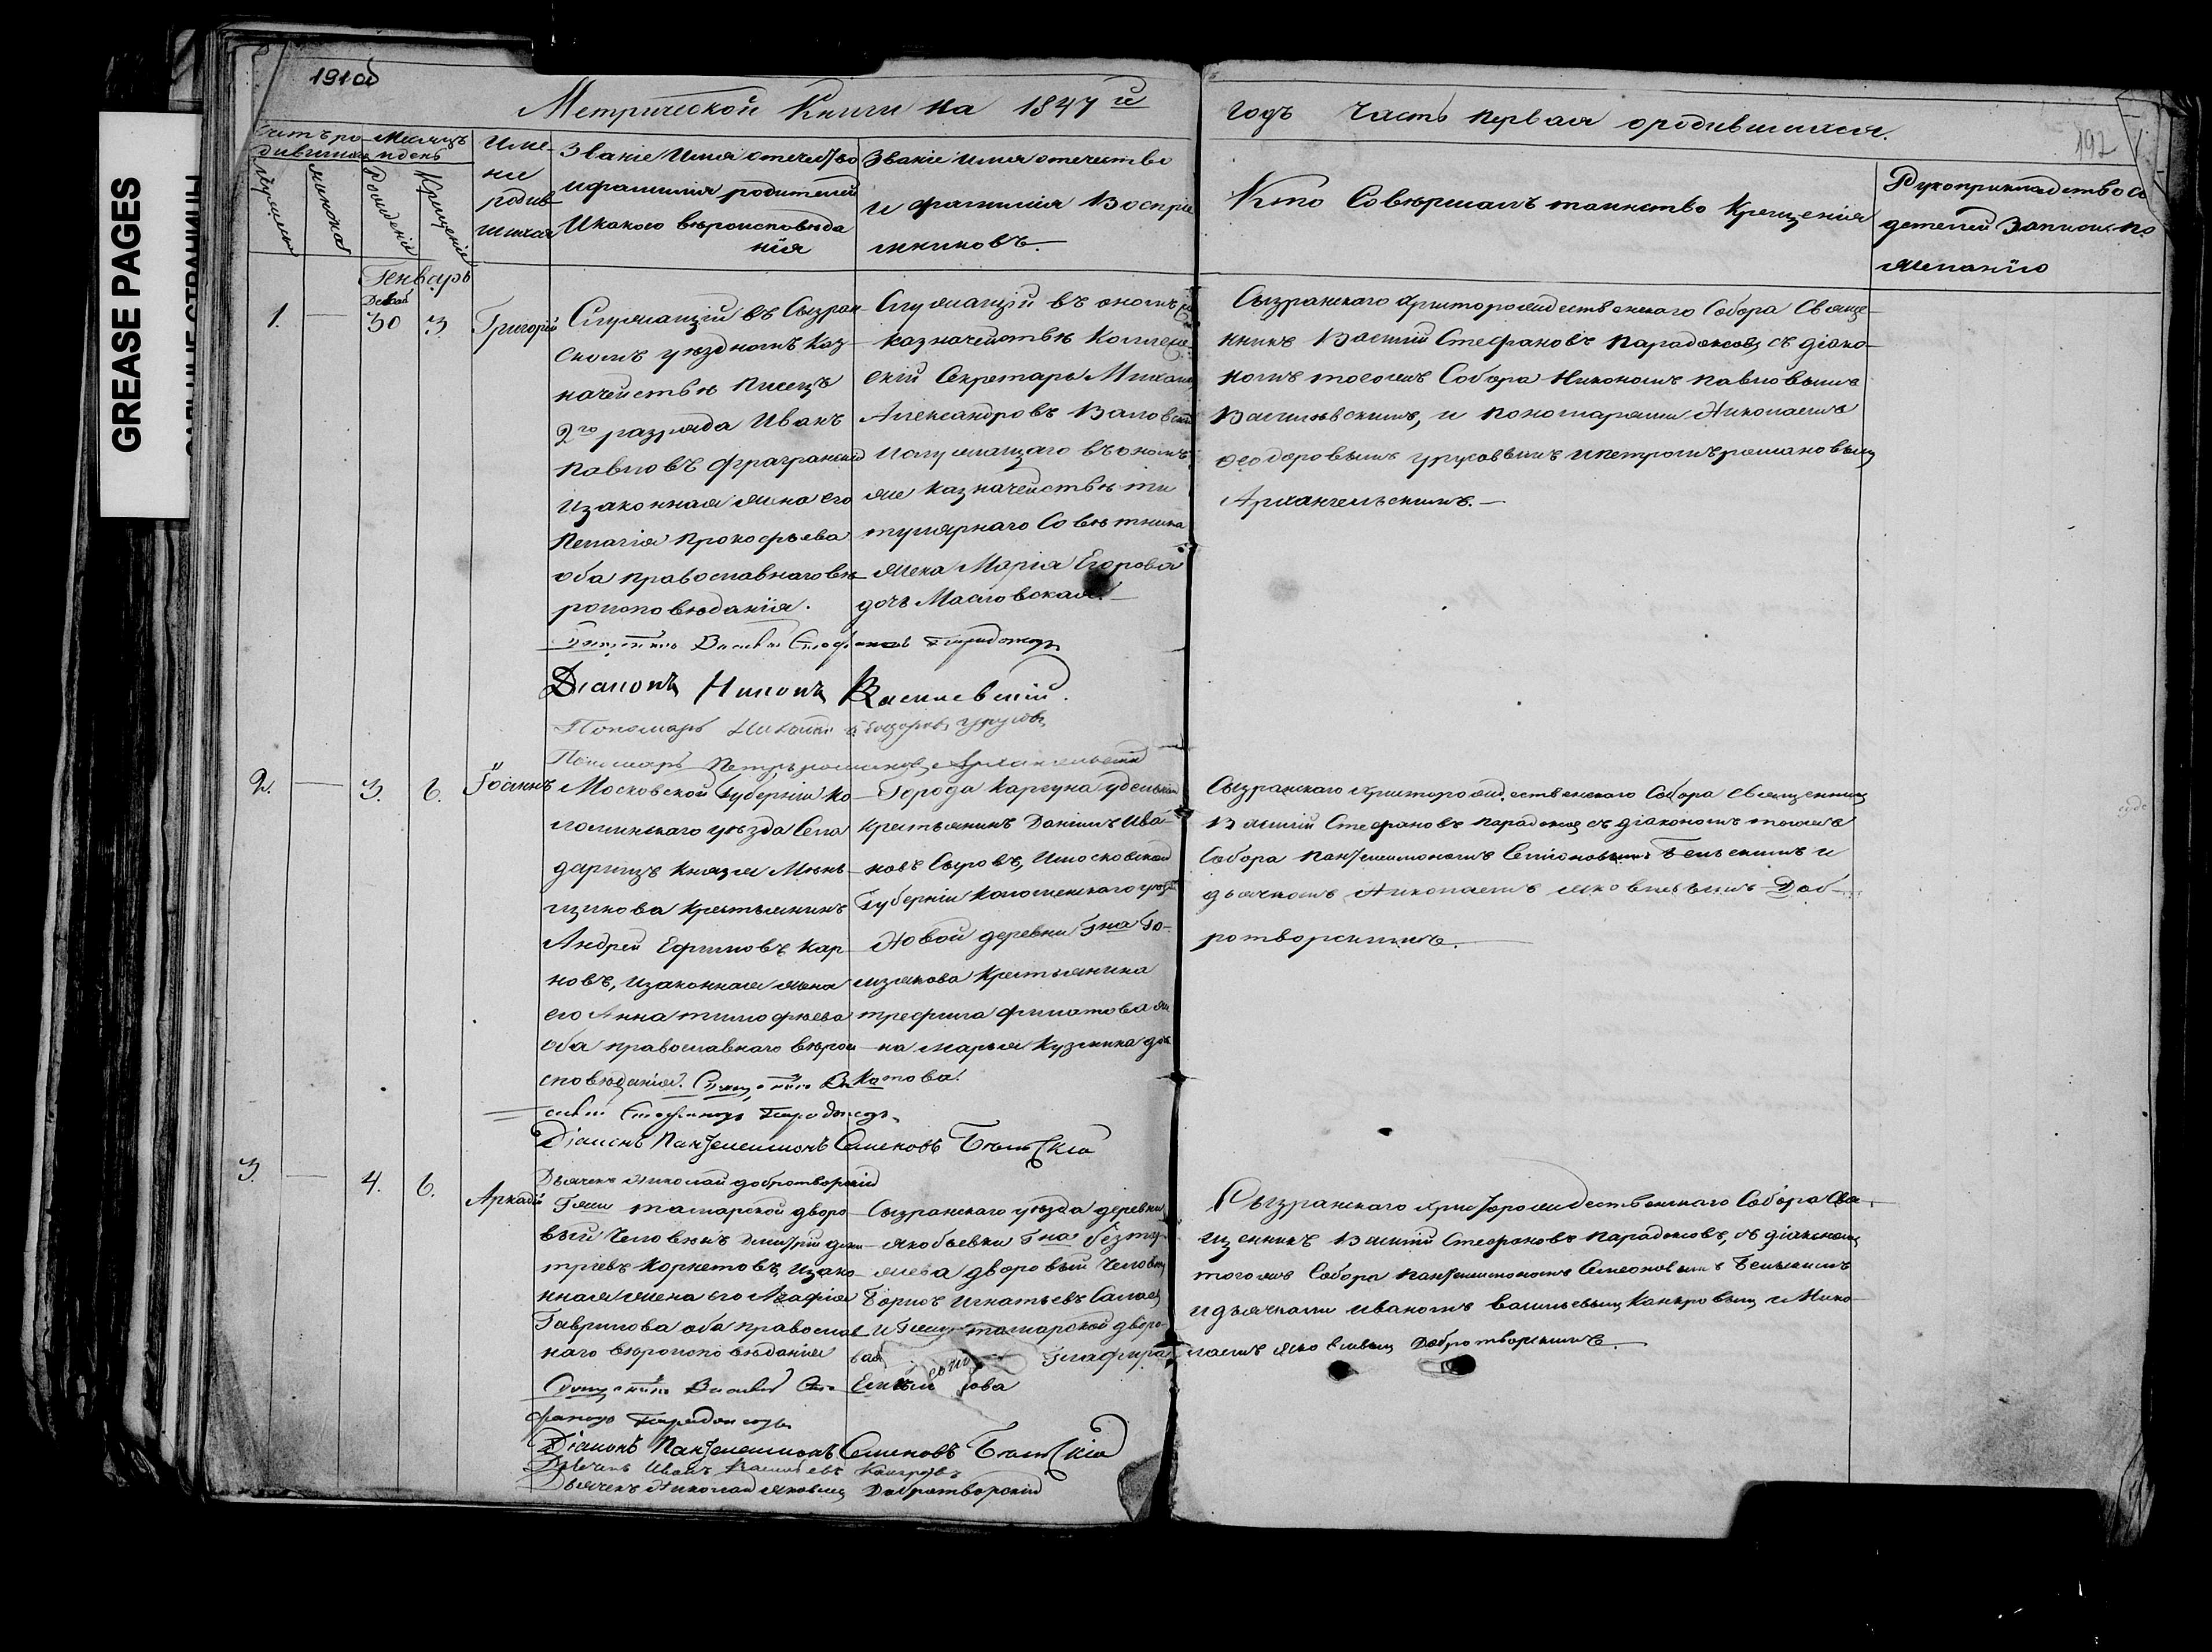 GREASE PAGES
191об
192
Метрической Книги на 1847й
годъ Часть первая о родившихся.
Счетъ ро-
дившихся
Мѣсяцъ
и день
мужеска
женска
рожденія
Крещенія
Име-
на
родив
шихся
Званіе Имя отечество
и фамилія родителей
и какого вѣроисповѣда
нія
Званіе имя отечество
и фамилія Воспріе
мниковъ.
Кто Совершалъ таинство Крещенія
Рукоприкладство Сви
детелей Записи по
желанію
Генварь
1.
Декаб
30
3.
Григорій
Служащій въ Сызран
скомъ уѣздномъ Каз
начействѣ писецъ
2го разряда Иванъ
Павловъ
и законная жена его
Пелагія Прокофьева
оба православнаго вѣ
роисповѣданія.
Служащій въ ономъ
казначействѣ Коллеж
скій Секретарь Михаилъ
Александровъ
и служащаго въ ономъ
же казначействѣ ти
тулярнаго Совѣтника
жена Марія Егорова
дочь Масловская.
Сызранскаго Христорождественскаго Собора Свяще
нникъ Василій Стефановъ Парадоксовъ съ діако
номъ тогожъ Собора Никономъ Павловымъ
Василевскимъ, и пономарями Николаемъ
Феодоровымъ Урусовымъ и Петромъ Романовымъ
Архангельскимъ.
Священникъ Василій Стефановъ Парадоксовъ
Діаконъ Никонъ Василевскій.
Пономарь Николай Феодоровъ Урусовъ
Пономарь Петръ Романовъ Архангельскій
2.
3.
6.
Іоаннъ
Московской Губерніи Ко
ломенскаго уѣзда Села
Дарищъ Князя Мень
щикова Крестьянинъ
Андрей Ефимовъ Кар
новъ, и законная жена
его Анна Тимофѣева
оба православнаго вѣрои
сповѣданія. Священникъ Ва
силій Стефановъ Парадоксовъ
Города Карсуна удельный
крестьянинъ Даніилъ Ива
новъ Сыровъ, и Московской
Губерніи Коломенскаго уѣзда
Новой деревни Гна
измакова Крестьянина
Трефила Филатова же
на Марья Кузмина дочь
Катова.
Сызранскаго Христорождественскаго Собора Священникъ
Василій Стефановъ Парадоксовъ съ діакономъ тогожъ
Собора Пантелеимономъ Семеновымъ Бельскимъ и
дьячкомъ Николаемъ Яковлевымъ Доб
ротворскимъ.
Діаконъ Пантелеимонъ Семеновъ Бѣльскій
Дьячекъ Николай Добротворскій
3.
4.
6.
Аркадій
Гжи Татарской дворо
вый Человѣкъ Дмитрій Дми
тріевъ Корнетовъ, и зако
нная жена его Агафія
Гаврилова оба православ
наго вѣроисповѣданія
Сызранскаго уѣзда деревни
Якобьевки Гна Безту
жева дворовый Человѣкъ
Борисъ Игнатьевъ
и Гжи Татарской дворо
вая Глафира
Сызранскаго Христорождественскаго Собора Свя
щенникъ Василій Стефановъ Парадоксовъ, съ діакономъ
тогожъ Собора Пантелеимономъ Семеоновымъ Бельскимъ
и дьячками Иваномъ Васильевымъ Канкровымъ и Нико
лаемъ Яковлевымъ Добротворскимъ.
Священникъ Василій Сте
фановъ Парадоксовъ
Діаконъ Пантелеимонъ Семеновъ Бѣльскій
Дьячекъ Иванъ Васильевъ Канкровъ
Дьячекъ Николай Яковлевъ Добротворскій